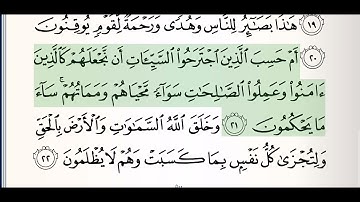 هَٰذَا بَصَٰٓئِرُ لِلنَّاسِ وَهُدًى وَرَحْمَةٌ لِّقَوْمٍ يُوقِنُونَ
٢٠ أَمْ حَسِبَ ٱلَّذِينَ ٱجْتَرَحُوا۟ ٱلسَّيِّـَٔاتِ أَن نَّجْعَلَهُمْ كَٱلَّذِينَ
ءَامَنُوا۟ وَعَمِلُوا۟ ٱلصَّٰلِحَٰتِ سَوَآءً مَّحْيَاهُمْ وَمَمَاتُهُمْ ۚ سَآءَ
مَا يَحْكُمُونَ ٢١ وَخَلَقَ ٱللَّهُ ٱلسَّمَٰوَٰتِ وَٱلْأَرْضَ بِٱلْحَقِّ
وَلِتُجْزَىٰ كُلُّ نَفْسٍۭ بِمَا كَسَبَتْ وَهُمْ لَا يُظْلَمُونَ ٢٢